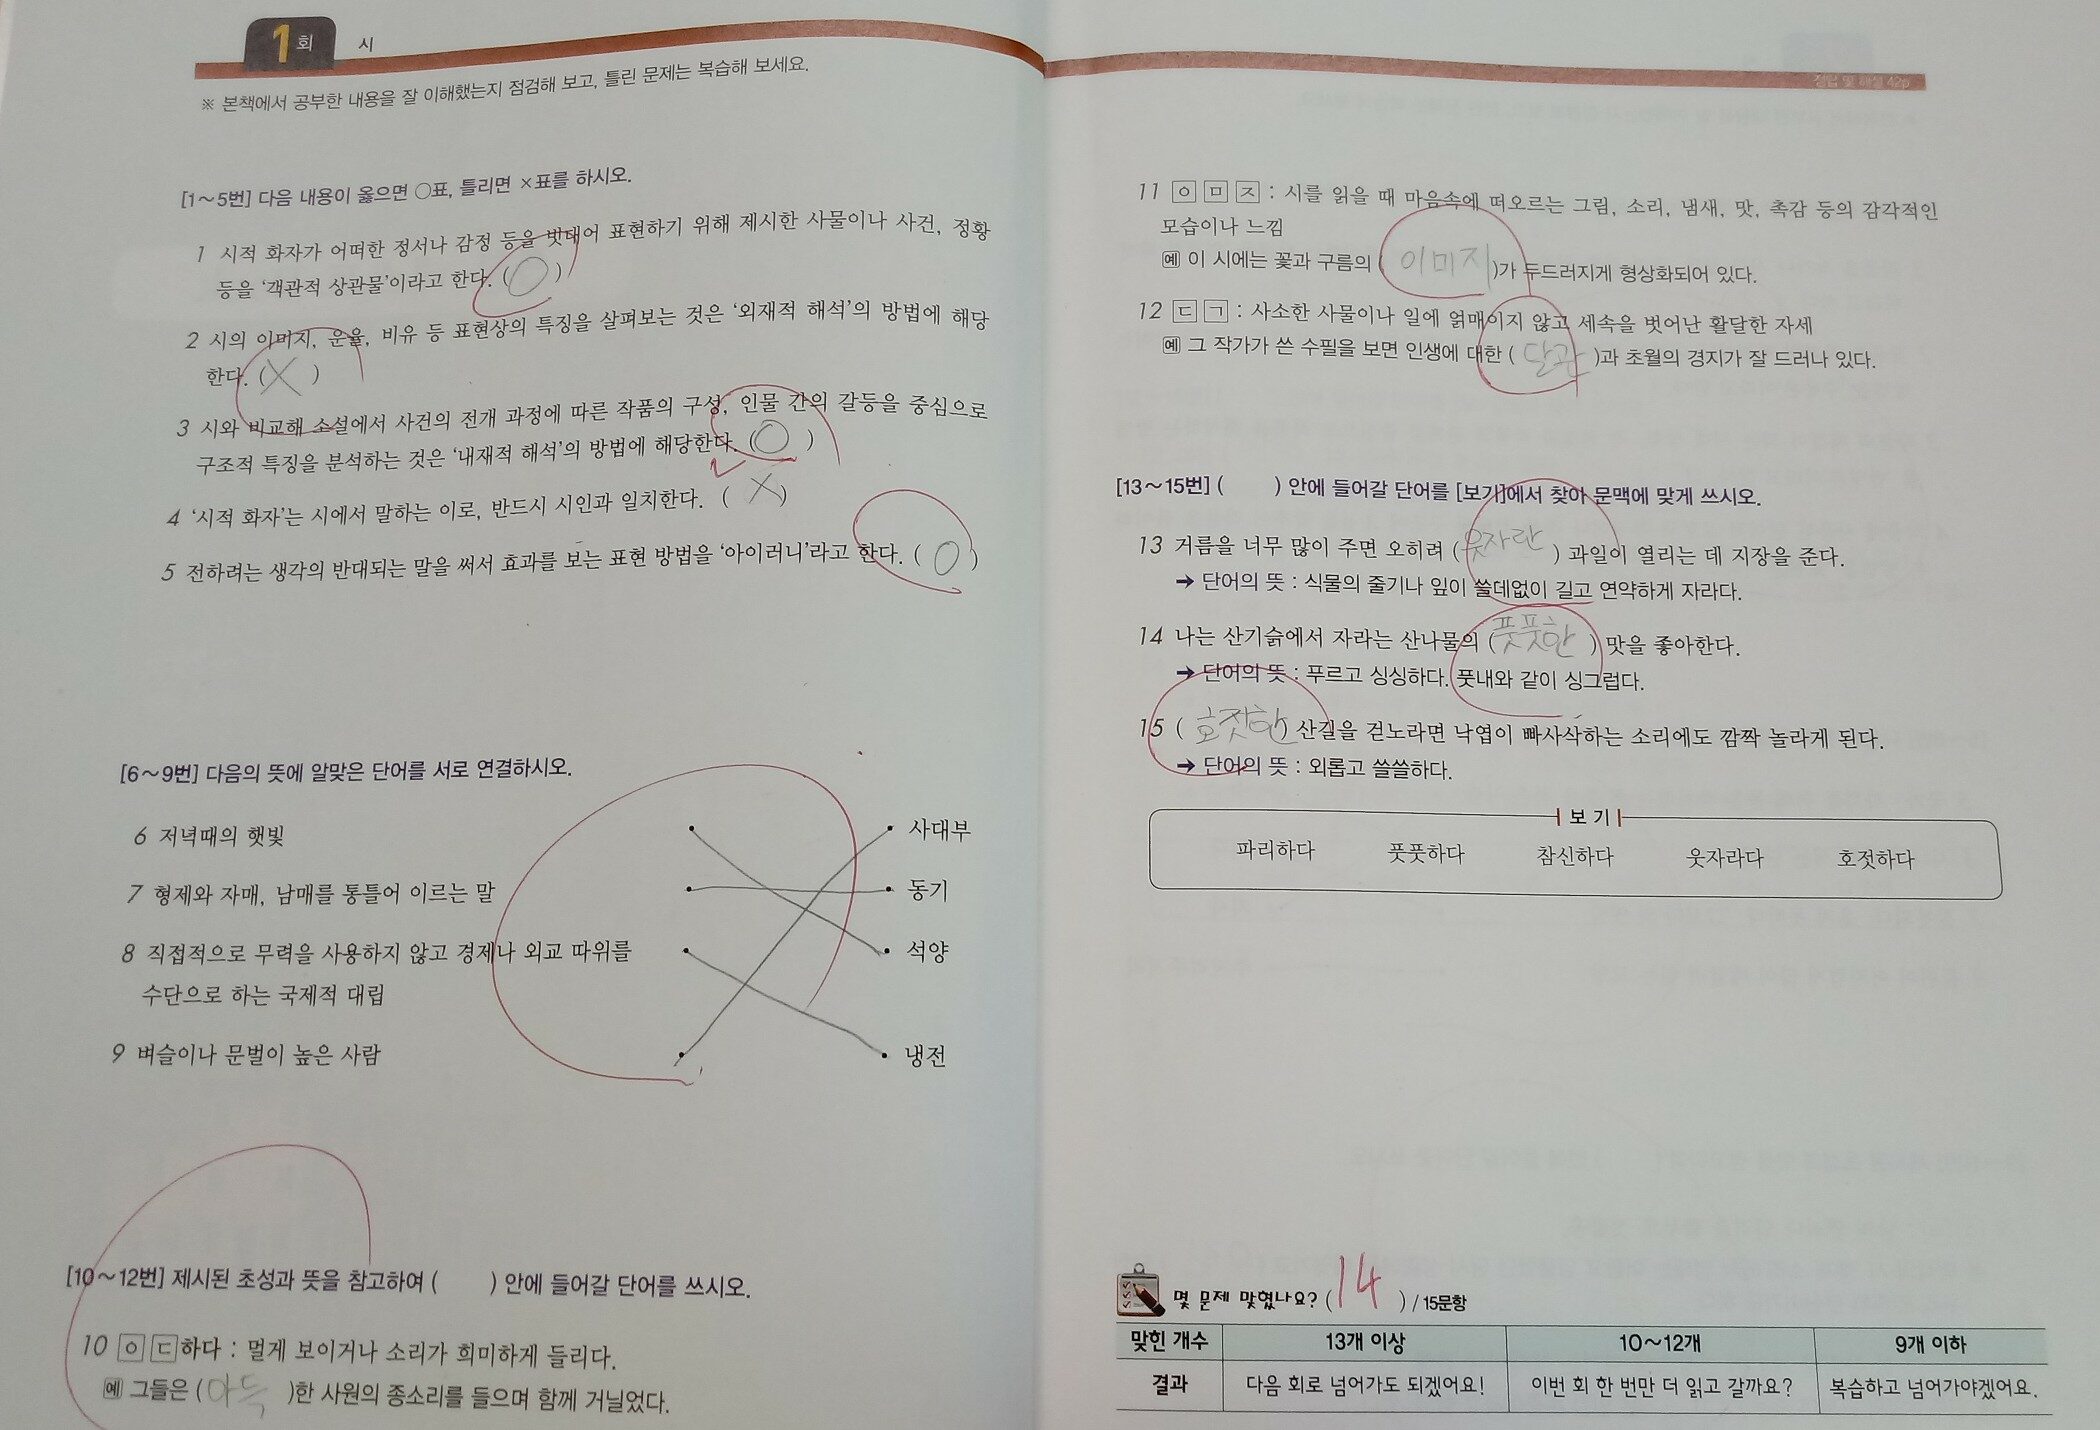 1회 시
※ 본책에서 공부한 내용을 잘 이해했는지 점검해 보고, 틀린 문제는 복습해 보세요.
[1~5번] 다음 내용이 옳으면 ○표, 틀리면 ×표를 하시오.
1 시적 화자가 어떠한 정서나 감정 등을 빗대어 표현하기 위해 제시한 사물이나 사건, 정황
등을 '객관적 상관물'이라고 한다. (O)
2 시의 이미지, 운율, 비유 등 표현상의 특징을 살펴보는 것은 '외재적 해석'의 방법에 해당
한다. (X)
3 시와 비교해 소설에서 사건의 전개 과정에 따른 작품의 구성, 인물 간의 갈등을 중심으로
구조적 특징을 분석하는 것은 '내재적 해석'의 방법에 해당한다. (O)
4 '시적 화자'는 시에서 말하는 이로, 반드시 시인과 일치한다. (X)
5 전하려는 생각의 반대되는 말을 써서 효과를 보는 표현 방법을 '아이러니'라고 한다. (O)
[6~9번] 다음의 뜻에 알맞은 단어를 서로 연결하시오.
6 저녁때의 햇빛 • • 사대부
7 형제와 자매, 남매를 통틀어 이르는 말 • • 동기
8 직접적으로 무력을 사용하지 않고 경제나 외교 따위를 • • 석양
수단으로 하는 국제적 대립
9 벼슬이나 문벌이 높은 사람 • • 냉전
[10~12번] 제시된 초성과 뜻을 참고하여 ( ) 안에 들어갈 단어를 쓰시오.
10 ㅇㄷ하다 : 멀게 보이거나 소리가 희미하게 들리다.
예 그들은 (아득)한 사원의 종소리를 들으며 함께 거닐었다.
정답 및 해설 42p
11 ㅇㅁㅈ : 시를 읽을 때 마음속에 떠오르는 그림, 소리, 냄새, 맛, 촉감 등의 감각적인
모습이나 느낌
예 이 시에는 꽃과 구름의 (이미지)가 두드러지게 형상화되어 있다.
12 ㄷㄱ : 사소한 사물이나 일에 얽매이지 않고 세속을 벗어난 활달한 자세
예 그 작가가 쓴 수필을 보면 인생에 대한 (달관)과 초월의 경지가 잘 드러나 있다.
[13~15번] ( ) 안에 들어갈 단어를 [보기]에서 찾아 문맥에 맞게 쓰시오.
13 거름을 너무 많이 주면 오히려 (웃자란) 과일이 열리는 데 지장을 준다.
→ 단어의 뜻 : 식물의 줄기나 잎이 쓸데없이 길고 연약하게 자라다.
14 나는 산기슭에서 자라는 산나물의 (풋풋한) 맛을 좋아한다.
→ 단어의 뜻 : 푸르고 싱싱하다. 풋내와 같이 싱그럽다.
15 (호젓한) 산길을 걷노라면 낙엽이 빠사삭하는 소리에도 깜짝 놀라게 된다.
→ 단어의 뜻 : 외롭고 쓸쓸하다.
보기
파리하다 풋풋하다 참신하다 웃자라다 호젓하다
몇 문제 맞혔나요? (14) / 15문항
맞힌 개수 13개 이상 10~12개 9개 이하
결과 다음 회로 넘어가도 되겠어요! 이번 회 한 번만 더 읽고 갈까요? 복습하고 넘어가야겠어요.